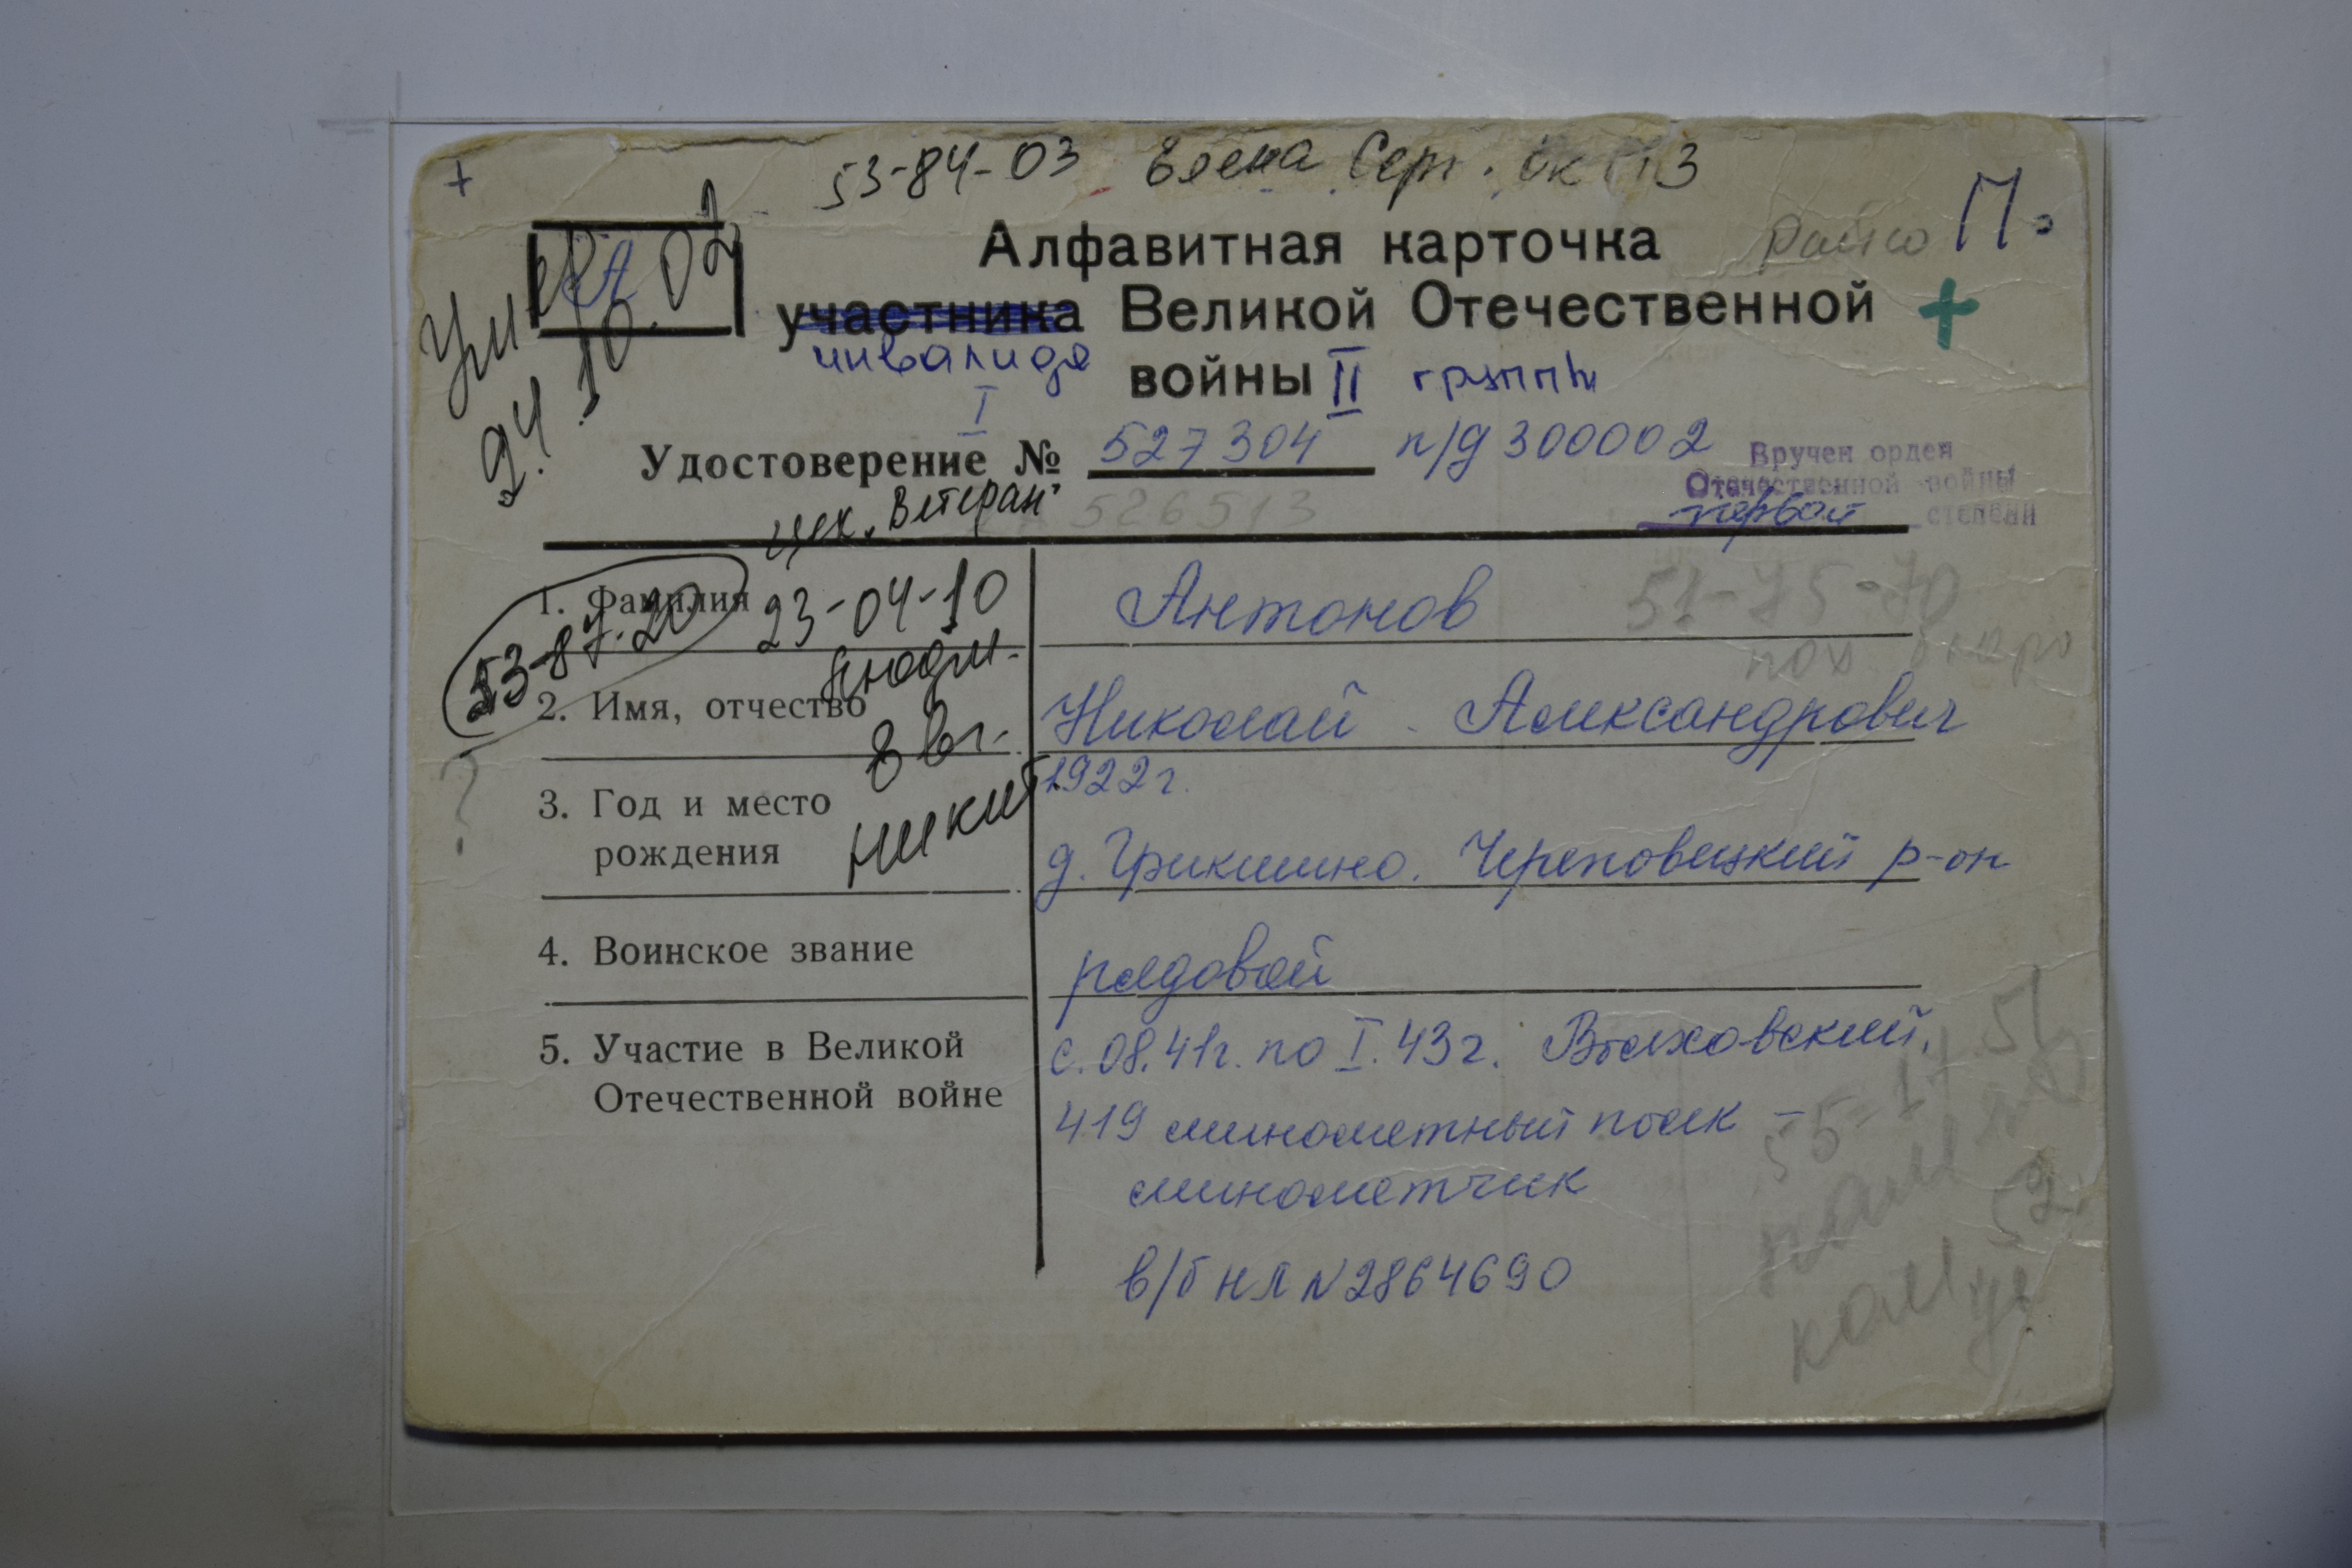 +
53-84-03 Елена Серг.
Алфавитная карточка
П.
А
Умер 24.10.02
участника Великой Отечественной +
инвалида
войны II группы
I
Удостоверение № 527304 п/д 300002
526513
Вручен орден
Отечественной войны
первой степени
"Ветеран"
1. Фамилия
53-87-20
23-04-10
Антонов
51-75-70
пох. бюро
2. Имя, отчество
Николай Александрович
?
3. Год и место
рождения
1922 г.
д. Грикшино. Череповецкий р-он
4. Воинское звание
рядовой
5. Участие в Великой
Отечественной войне
с. 08.41г. по I.43г. Волховский,
419 минометный полк –
минометчик
в/б НЛ N 2864690